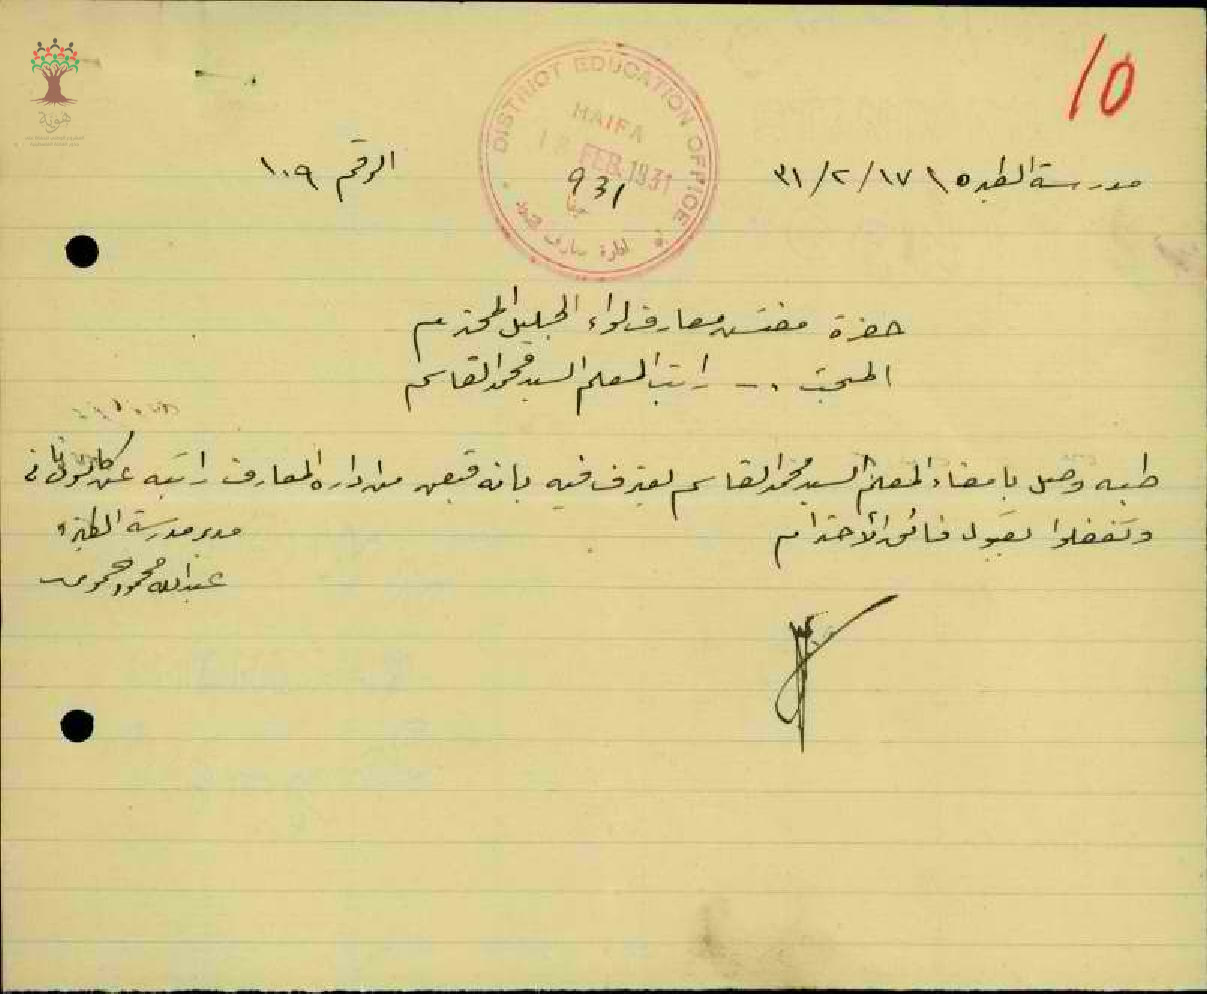 10
مدرسة الطيره ١٧/٢/٣١
الرقم ١٠٩
DISTRICT EDUCATION OFFICE
HAIFA
18 FEB. 1931
931
حيفا
ادارة معارف
هوية
حضرة مفتش معارف لواء الجليل المحترم
المبحث :- راتب المعلم السيد محمد القاسم
طيه وصل بامضاء المعلم السيد محمد القاسم يعترف فيه بانه قبض من ادارة المعارف راتبه عن كانون ثاني
وتفضلوا بقبول فائق الاحترام
مدير مدرسة الطيره
عبدالله محمود